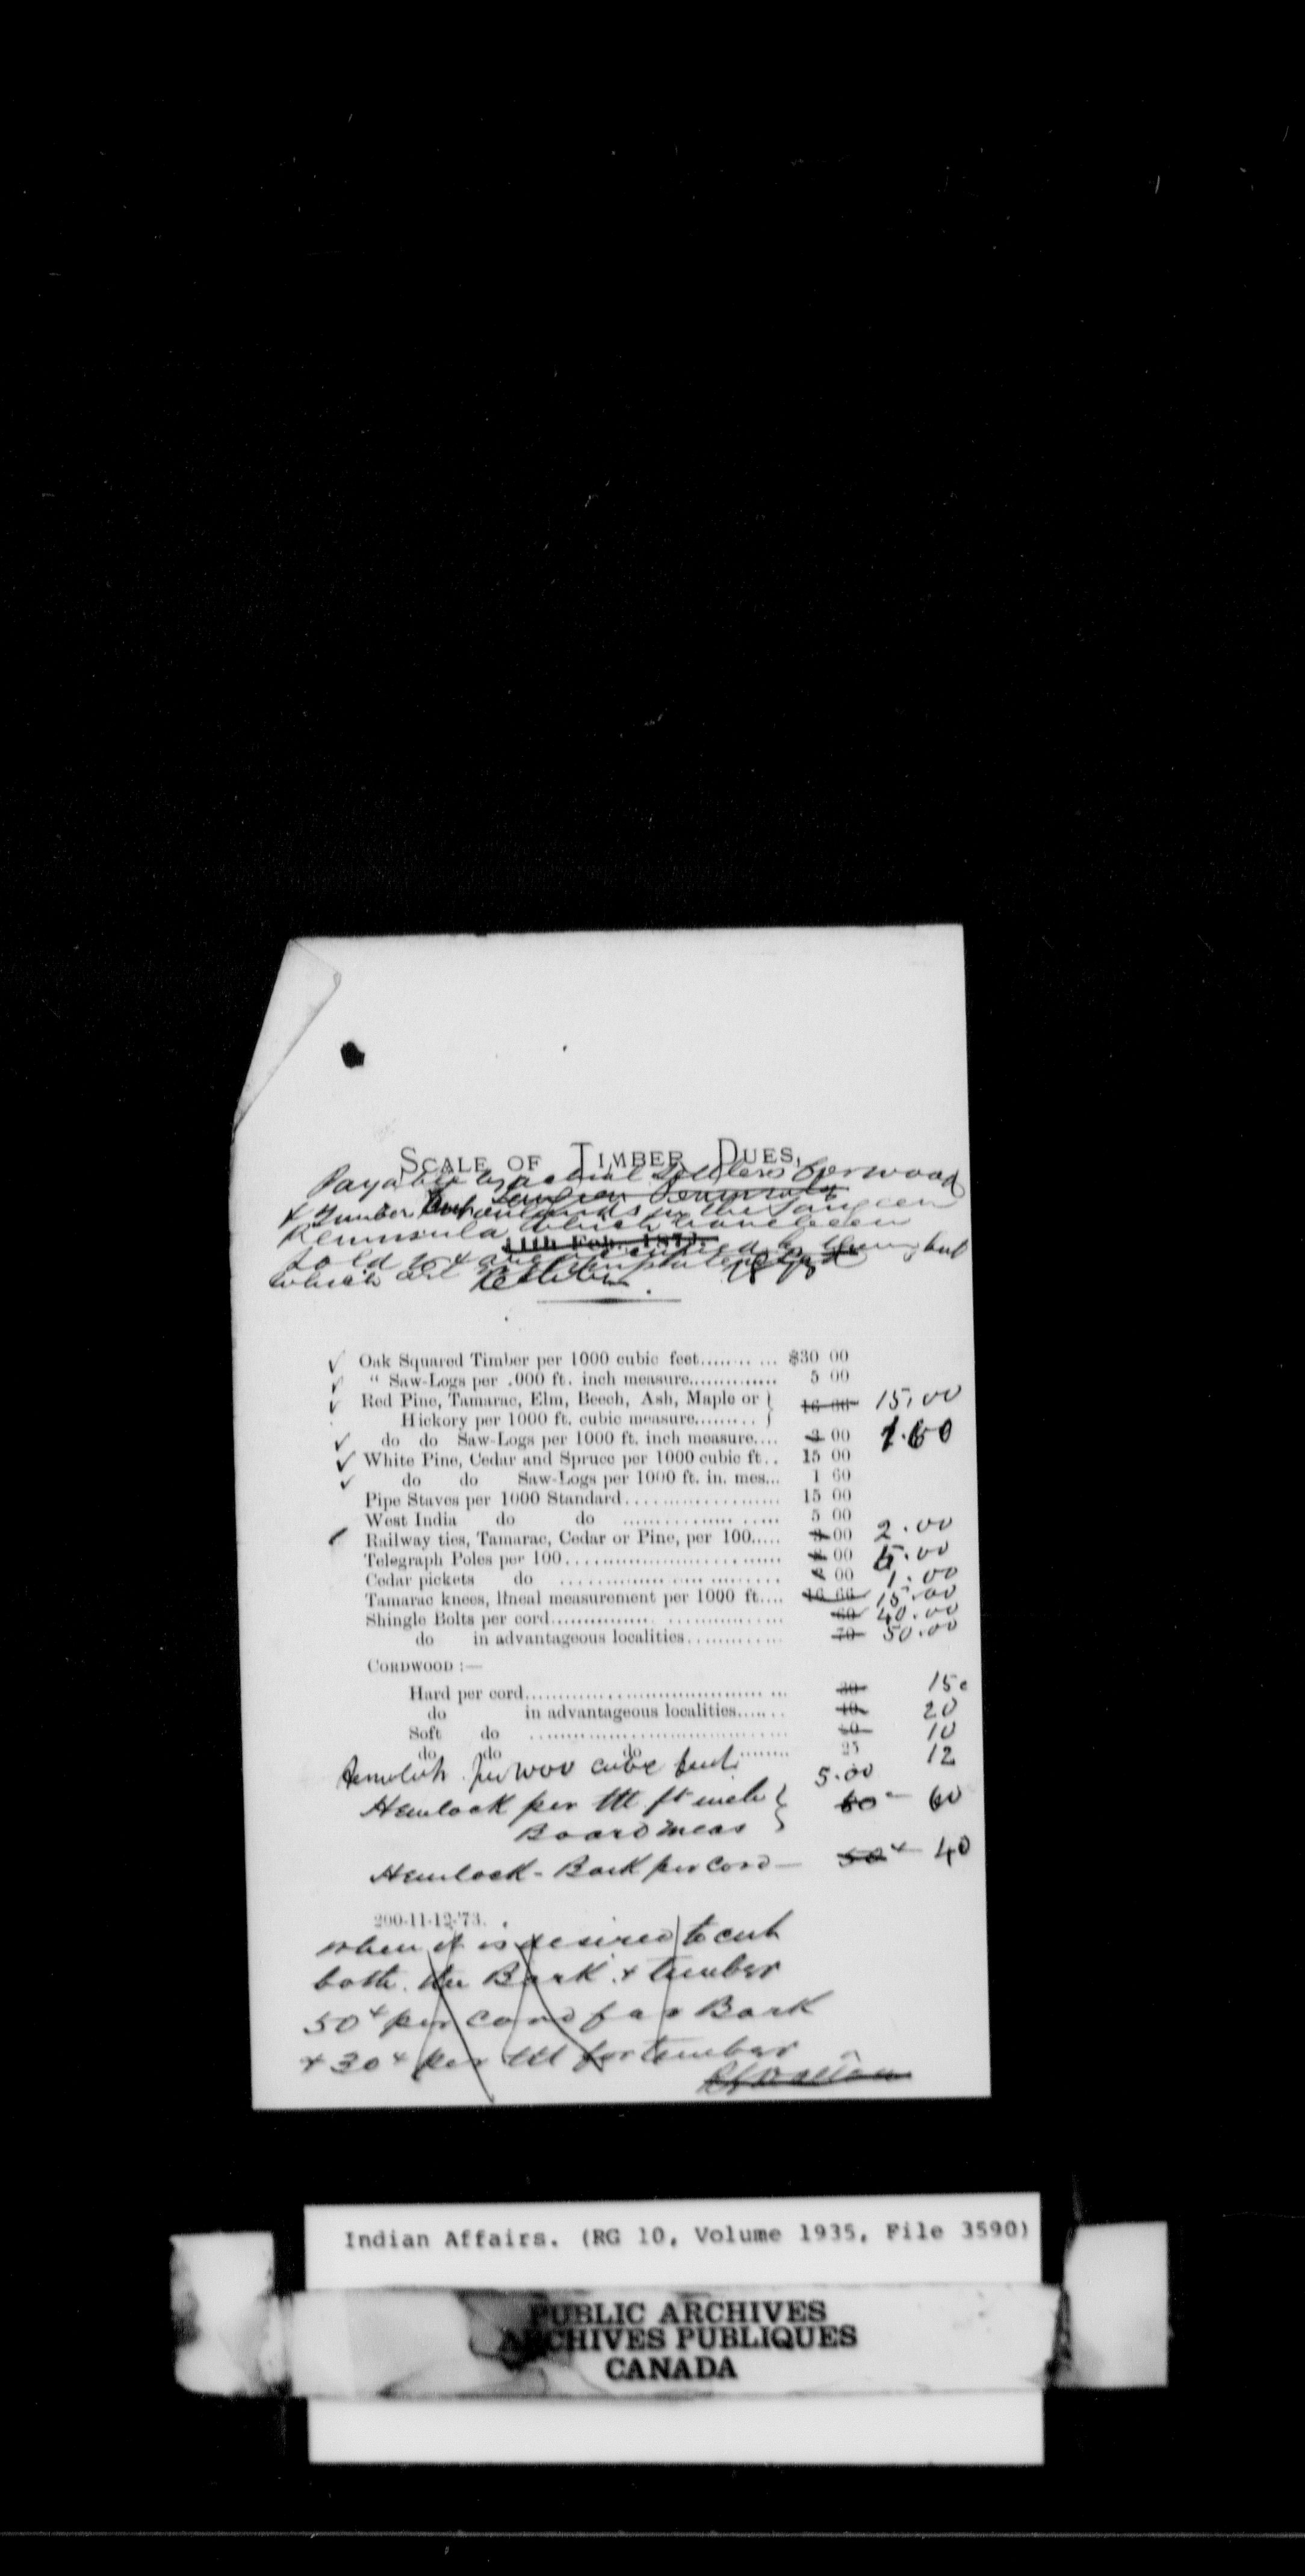 SCALE OF TIMBER DUES,
Payable by actual Settlers for wood
& Timber cut on lands in the Saugeen
Saugeen Peninsula
Peninsula which have been
11th Feb., 187
sold to & are occupied by them, but
which are
Oak Squared Timber per 1000 cubic feet........ ... $30 00
" Saw-Logs per .000 ft. inch measure.............. 5 00
Red Pine, Tamarac, Elm, Beech, Ash, Maple or }
Hickory per 1000 ft. cubic measure......... } 15.00
do do Saw-Logs per 1000 ft. inch measure.... 00 1.60
White Pine, Cedar and Spruce per 1000 cubic ft.. 15 00
do do Saw-Logs per 1000 ft. in. mes... 1 60
Pipe Staves per 1000 Standard.................... 15 00
West India do do .................... 5 00
Railway ties, Tamarac, Cedar or Pine, per 100..... 00 2.00
Telegraph Poles per 100............................ 00 5.00
Cedar pickets do ............................ 00 1.00
Tamarac knees, lineal measurement per 1000 ft.... 16 66 15.00
Shingle Bolts per cord............................ 60 40.00
do in advantageous localities............. 70 50.00
CORDWOOD :—
Hard per cord.................................... 30 15c
do in advantageous localities....... 40 20
Soft do .................................... 10
do do do ........ 25 12
Hemlock per 1000 cubic feet 5.00
Hemlock per M ft inch } 60
Board meas }
Hemlock - Bark per Cord — 50 c — 40
200-11-12-'73.
when it is desired to cut
both the Bark & timber
50 c per cord for Bark
& 30 c per M for timber
Indian Affairs. (RG 10, Volume 1935, File 3590)
PUBLIC ARCHIVES
ARCHIVES PUBLIQUES
CANADA